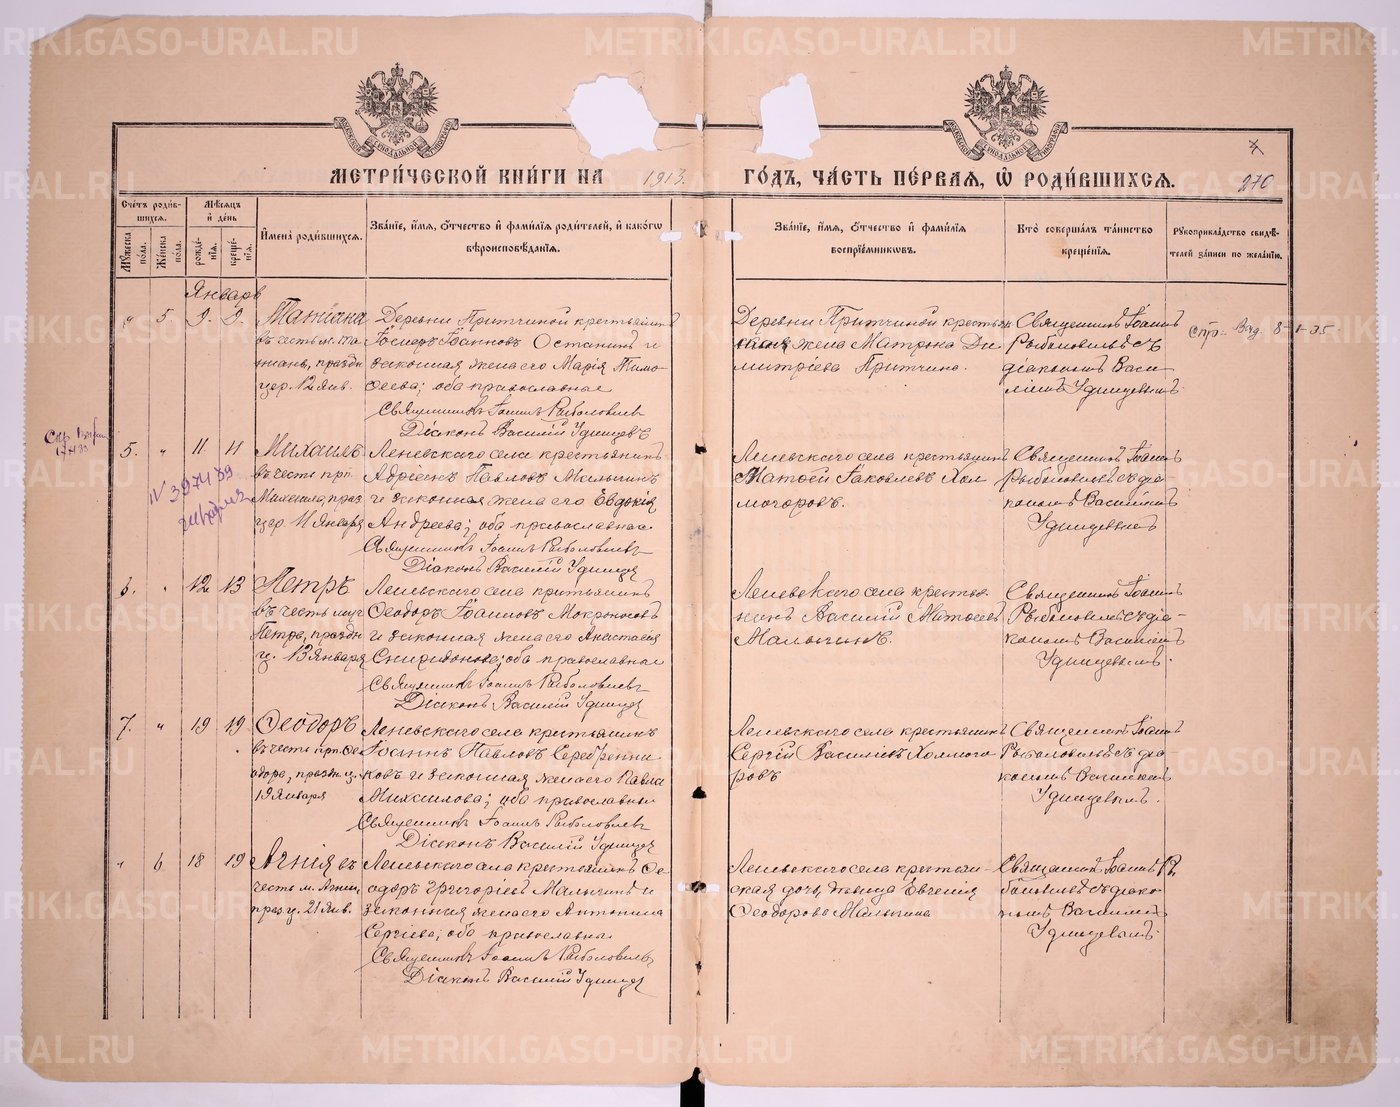 МЕТРИ́ЧЕСКОЙ КНИ́ГИ НА 1913. ГО́ДЪ, ЧА́СТЬ ПЕ́РВАЯ, Ѡ РОДИ́ВШИХСѦ.
270
Сче́тъ роди́в-
шихся.
Мѣ́сяцъ
и́ де́нь
Му́жеска по́ла.
Же́нска по́ла.
рожде́нія.
креще́нія.
И́мена роди́вшихся.
Зва́ніе, и́мя, о́тчество и́ фами́лія роди́телей, и́ како́гѡ
вѣроисповѣ́данія.
Зва́ніе, и́мя, о́тчество и́ фами́лія
воспріе́мниковъ.
Кто̀ соверша́лъ та́инство
креще́нія.
Рукоприкла́дство свидѣ́-
телей за́писи по жела́нію.
Январь
" 5 9. 9.
Татіана
въ честь м. Та
тіаны, праздн
цер. 12 Янв.
Деревни Притчиной крестьянинъ
Іоаннов Останин и
законная жена его Марія Тимо
ѳеева; оба православные
Священникъ Іоаннъ Рыболовлев
Діаконъ Василій Удинцевъ
Деревни Притчиной крестьян
жена Матрона Ди
митріева Притчина.
Священник Іоанн
Рыболовлевъ съ
діакономъ Васи
ліем Удинцевымъ
5. " 11 11
Михаилъ
въ честь прп.
Михаила, праз
цер. 11 Января
Леневскаго села крестьянинъ
Адріан Павлов Малыгин
и законная жена его Евдокія
Андреева; оба православные
Священникъ Іоаннъ Рыболовлевъ
Діаконъ Василій Удинцев
Леневскаго села крестьянинъ
Матѳей Іаковлевъ Хол
могоровъ.
Священникъ Іоанн
Рыболовлевъ съ діа
кономъ Василіем
Удинцевым
6. " 12 13
Петръ
въ честь муч
Петра, праздн
ц. 13 Января
Леневскаго села крестьянинъ
Ѳеодоръ Іоаннов Мокроносовъ
и законная жена его Анастасія
Спиридонова; оба православные
Священникъ Іоаннъ Рыболовлев
Діаконъ Василій Удинцев
Леневскаго села крестья
нинъ Василій Матѳеев
Малыгинъ.
Священникъ Іоанн
Рыболовлевъ съ діа-
кономъ Василіем
Удинцевымъ.
7. " 19 19
Ѳеодоръ
въ честь прп. Ѳе
одора, празд. ц.
19 Января
Леневскаго села крестьянинъ
Іоаннъ Павловъ Серебренни
ковъ и законная жена его
Михаилова; оба православные
Священникъ Іоаннъ Рыболовлевъ
Діаконъ Василій Удинцев
Леневскаго села крестьянин
Сергій Васильевъ Холмого
ровъ
Священник Іоанн
Рыболовлевъ съ діа
кономъ Василіем
Удинцевымъ.
" 6 18 19
Агнія въ
честь м. Агніи
праз. ц. 21 Янв.
Леневскаго села крестьянин Ѳе
одоръ Григоріев Малыгинъ и
законная жена его Антонина
Сергіева; оба православные
Священникъ Іоаннъ Рыболовлевъ
Діаконъ Василій Удинцев
Леневскаго села крестьян-
ская дочь, дѣвица Евгенія
Ѳеодорова Малыгина
Священникъ Іоанн Ры
боловлевъ съ діако
номъ Василіем
Удинцевымъ.
METRIKI.GASO-URAL.RU